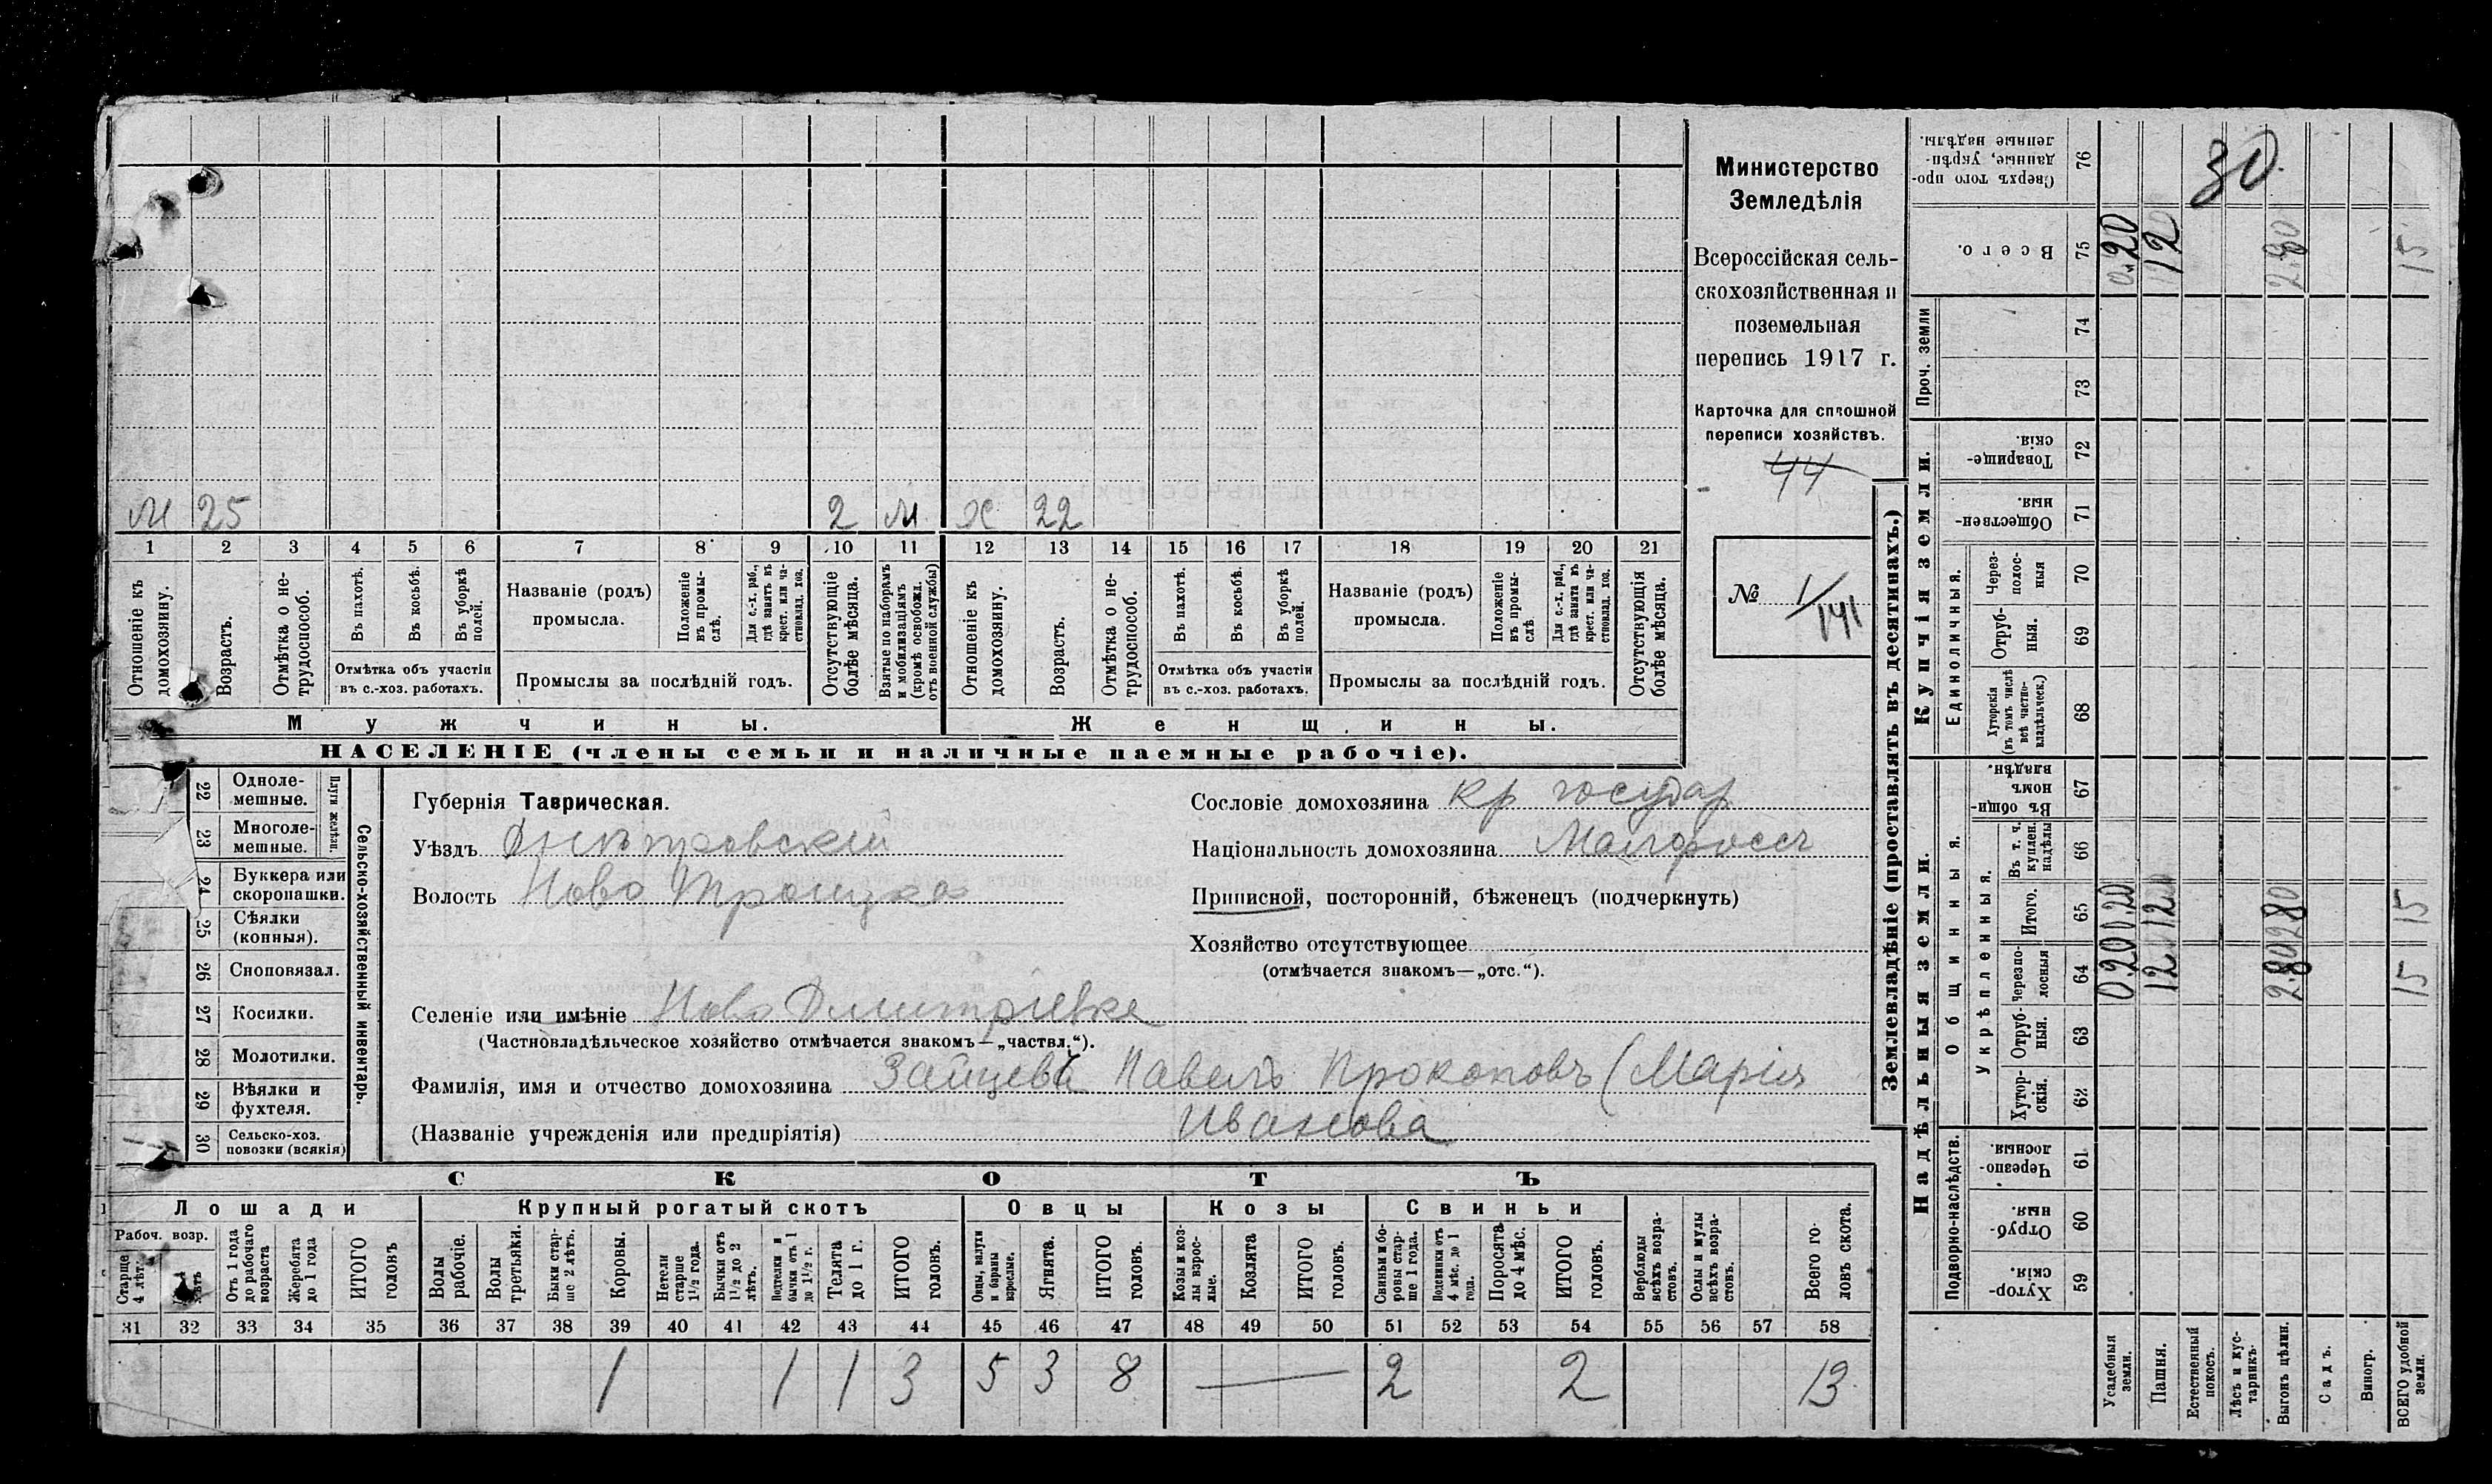 Министерство
Земледѣлія
Всероссійская сель-
скохозяйственная и
поземельная
перепись 1917 г.
Карточка для сплошной
переписи хозяйствъ.
44
№ 1/141
М 25 2 м. Ж 22
1 2 3 4 5 6 7 8 9 10 11 12 13 14 15 16 17 18 19 20 21
Отношеніе къ домохозяину.
Возрастъ.
Отмѣтка о не-трудоспособ.
Въ пахотѣ.
Въ косьбѣ.
Въ уборкѣ полей.
Отмѣтка объ участіи
въ с.-хоз. работахъ.
Названіе (родъ)
промысла.
Положеніе въ промы-слѣ.
Для с.-х. раб., гдѣ занятъ въ крест. или ча-стновлад. хоз.
Промыслы за послѣдній годъ.
Отсутствующіе болѣе мѣсяца.
Взятые по наборамъ и мобилизаціямъ (кромѣ освобожд. отъ военной службы)
Отношеніе къ домохозяину.
Возрастъ.
Отмѣтка о не-трудоспособ.
Въ пахотѣ.
Въ косьбѣ.
Въ уборкѣ полей.
Отмѣтка объ участіи
въ с.-хоз. работахъ.
Названіе (родъ)
промысла.
Положеніе въ промы-слѣ
Для с.-х. раб., гдѣ занята въ крест. или ча-стновлад. хоз.
Промыслы за послѣдній годъ.
Отсутствующія болѣе мѣсяца.
Мужчины. Женщины.
НАСЕЛЕНІЕ (члены семьи и наличные наемные рабочіе).
Сельско-хозяйственный инвентарь.
Плуги желѣзн.
22 Одноле-мешные.
23 Многоле-мешные.
24 Буккера или скоропашки.
25 Сѣялки (конныя).
26 Сноповязал.
27 Косилки.
28 Молотилки.
29 Вѣялки и фухтеля.
30 Сельско-хоз. повозки (всякія)
Губернія Таврическая.
Уѣздъ Днѣпровскій
Волость Ново Троицкая
Селеніе или имѣніе Ново Дмитріевка
(Частновладѣльческое хозяйство отмѣчается знакомъ—„частвл.“).
Фамилія, имя и отчество домохозяина Зайцевъ Павелъ Прокоповъ (Марія
(Названіе учрежденія или предпріятія) Иванова
Сословіе домохозяина кр государ
Національность домохозяина Малоросъ
Приписной, посторонній, бѣженецъ (подчеркнуть)
Хозяйство отсутствующее
(отмѣчается знакомъ—„отс.“).
СКОТЪ
Лошади Крупный рогатый скотъ Овцы Козы Свиньи
Рабоч. возр.
Старше 4 лѣт.
Отъ 1 года до рабочаго возраста
Жеребята до 1 года
ИТОГО головъ
Волы рабочіе.
Волы третьяки.
Быки стар-ше 2 лѣтъ.
Коровы.
Нетели старше 1½ года.
Бычки отъ 1½ до 2 лѣтъ.
Подтелки и бычки отъ 1 до 1½ г.
Телята до 1 г.
ИТОГО головъ.
Овцы, валухи и бараны взрослые.
Ягнята.
ИТОГО головъ.
Козы и коз-лы взрос-лые.
Козлята
ИТОГО головъ.
Свиньи и бо-ровы стар-ше 1 года.
Подсвинки отъ 4 мѣс. до 1 года.
Поросята до 4 мѣс.
ИТОГО головъ.
Верблюды всѣхъ возра-стовъ.
Ослы и мулы всѣхъ возра-стовъ.
Всего го-ловъ скота.
31 32 33 34 35 36 37 38 39 40 41 42 43 44 45 46 47 48 49 50 51 52 53 54 55 56 57 58
1 1 1 3 5 3 8 — 2 2 13
Землевладѣніе (проставлять въ десятинахъ.)
Надѣльныя земли. Купчія земли. Проч. земли
Подворно-наслѣдств.
Общинныя.
Укрѣпленныя.
Единоличныя.
59 Хутор-скія.
60 Отруб-ныя.
61 Черезпо-лосныя.
62 Хутор-скія.
63 Отруб-ныя.
64 Черезпо-лосныя
65 Итого.
66 Въ т. ч. куплен. надѣлы
67 Въ общи-номъ владѣн.
68 Хуторскія (въ томъ числѣ всѣ частно-владѣльческ.)
69 Отруб-ныя.
70 Через-полос-ныя
71 Обществен-ныя.
72 Товарище-скія.
73
74
75 Всего.
76 Сверхъ того про-данные, укрѣп-ленные надѣлы.
Усадебныя земли. 0.20 0.20 0.20
Пашня. 12 12 12
Естественный покосъ.
Лѣсъ и кус-тарникъ.
Выгонъ цѣлин. 2.80 2.80 2.80
Садъ.
Виногр.
ВСЕГО удобной земли. 15 15 15
30.